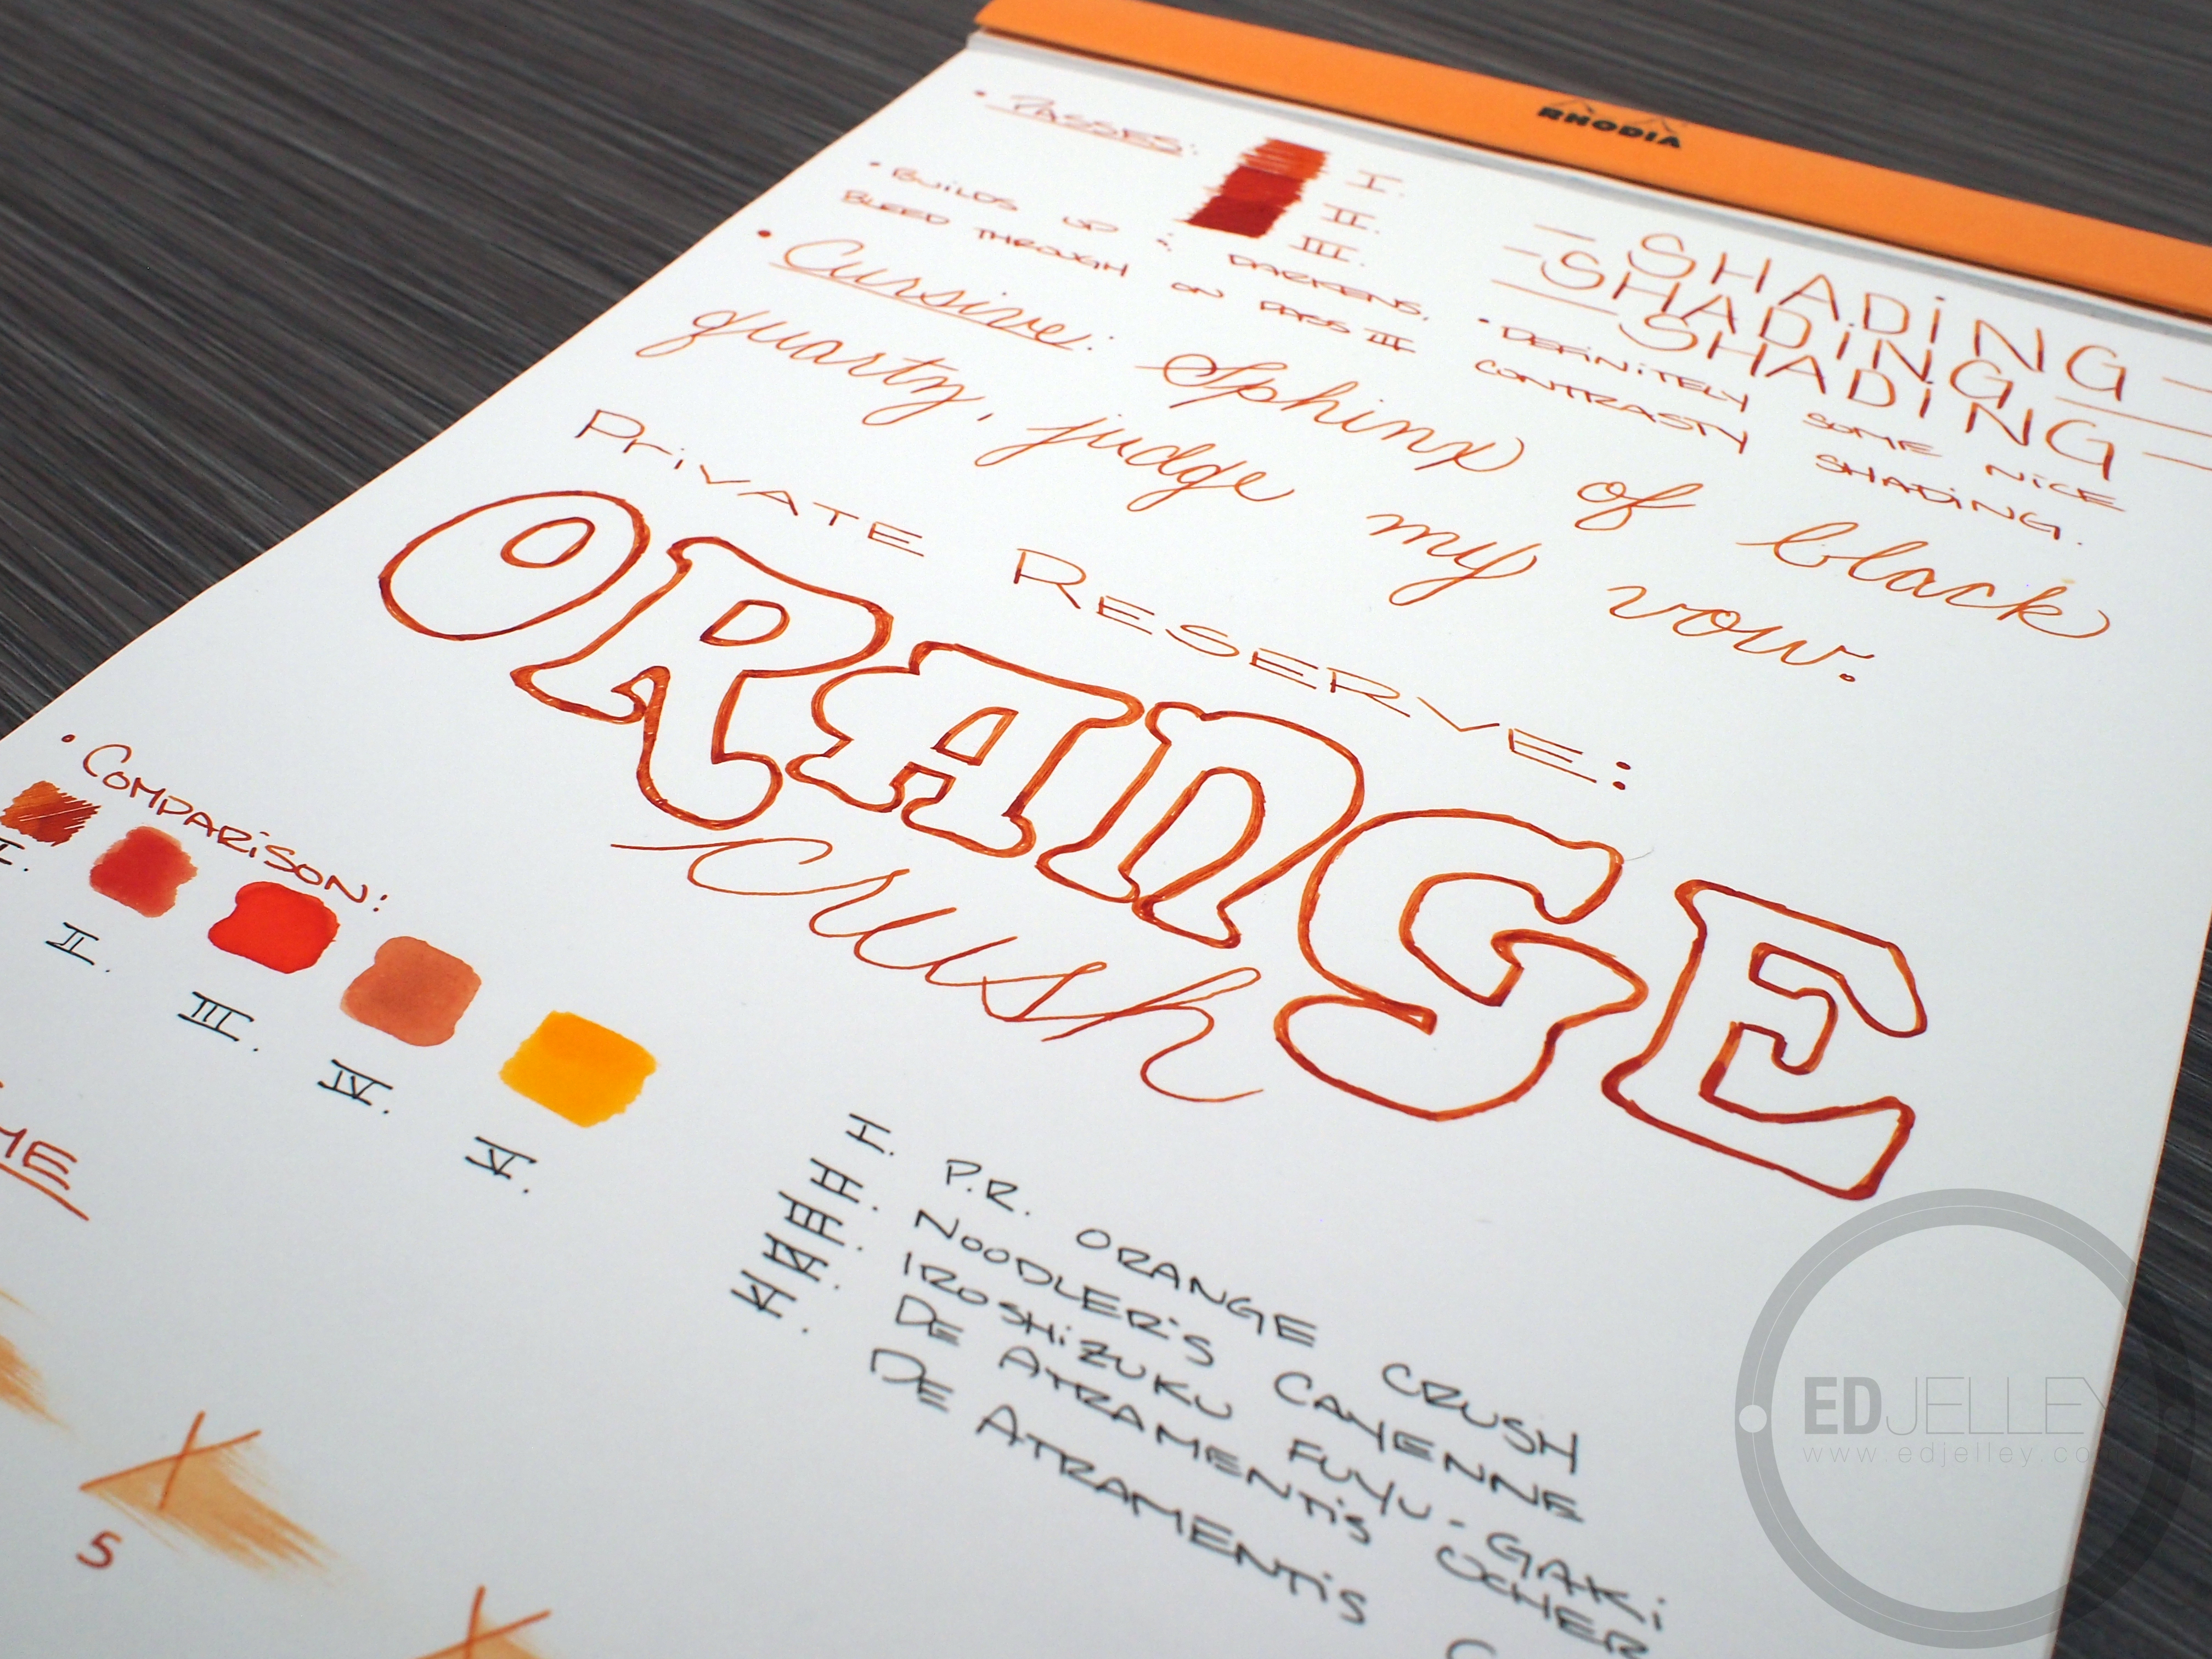 RHODIA
• PASSES:
I.
II.
III.
• BUILDS UP & DARKENS.
BLEED THROUGH ON PASS III
— SHADING —
— SHADING —
— SHADING —
• DEFINITELY SOME NICE
CONTRASTY SHADING.
• Cursive: Sphinx of black
quartz, judge my vow.
PRIVATE RESERVE:
ORANGE
crush
• COMPARISON:
I.
II.
III.
IV.
V.
I. P.R. ORANGE CRUSH
II. NOODLER'S CAYENNE
III. IROSHIZUKU FUYU-GAKI
IV. DE ATRAMENTIS OCHER
V. DE ATRAMENTIS
5
EDJELLEY
www.edjelley.co